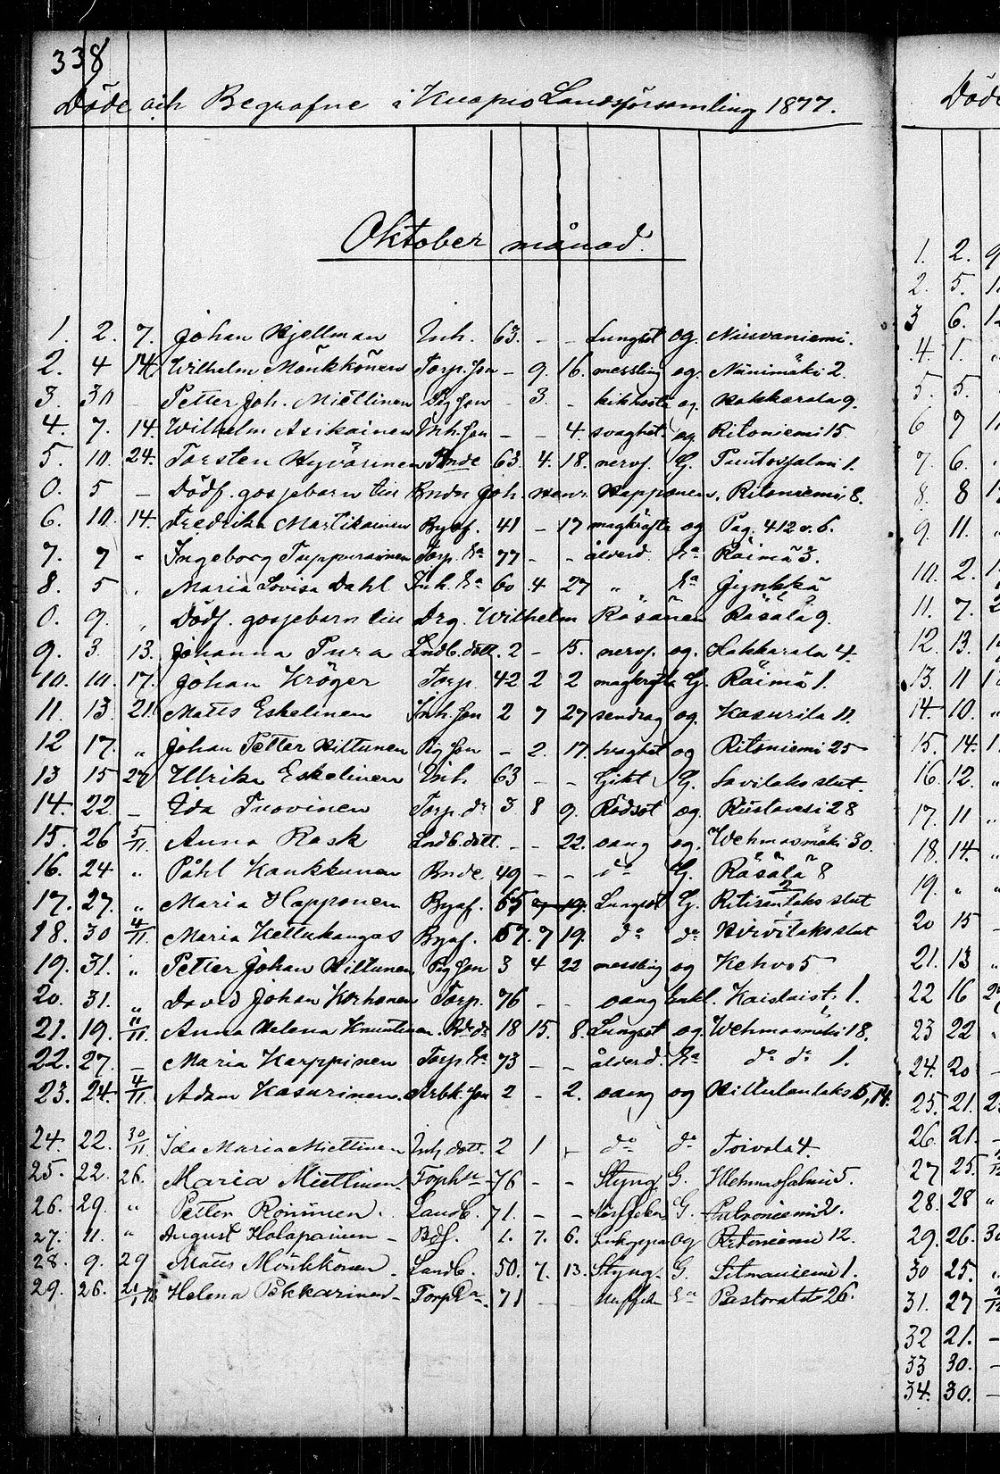 338
Döde och Begrafne i Kuopio Landsförsamling 1877.
Oktober månad.
1. 2. 7. Johan Kjellman Inh. 63. - - Lungsot og. Niuvaniemi.
2. 4 14. Wilhelm Mönkkönen Torp. Son - 9. 16. messling og. Niinimäki 2.
3. 30 Petter Joh. Miettinen Pig Son - 3. - kikhosta og. Hakkarala 9.
4. 7. 14. Wilhelm Asikainen Inh. Son - - 4. svaghet. og Ritoniemi 15
5. 10. 24. Torsten Hyvärinen Bnde 63. 4. 18. nervf. G. Puutosjalmi 1.
0. 5 - Dödf. gossebarn till Bndn Joh. Henr. Happonen, Ritoniemi 8.
6. 10. 14. Fredrika Martikainen Byaf. 41 - 17 magkräfta og Pag. 412 v. 6.
7. 7 " Ingeborg Torp. Ea 77 - - ålderd. Ea Räimä 3.
8. 5 . Maria Lovisa Dahl Inh. Ea 60 4 27 " Ea Jynkkä
0. 9. , Dödf. gossebarn till Drg. Wilhelm Räsänen Räsälä 9.
9. 3 13. Johanna Tura Landb. dott. 2 - 15. nervf. og. Hakkarala 4.
10. 10. 17. Johan Kröger Torp. 42 2 2 magkräfta G. Räimä 1.
11. 13. 21. Matts Eskelinen Inh. Son 2 7 27 sendrag og. Kasurila 11.
12 17. " Johan Petter Hiltunen Pig Son - 2. 17. svaghet og Ritoniemi 25
13 15 27 Ulrika Eskelinen Inh. 63 - - Gikt G. Savilaks slut.
14. 22 - Ida Tuovinen Torp. dr 3 8 9. Rödsot og Riistavesi 28
15. 26 5/11. Anna Rask Landb. dott. - - 22. oang og. Wehmasmäki 30.
16. 24 " Påhl Kaukkunen Bnde. 49 - - do G. Räsälä 8
17. 27. " Maria Happonen Byaf. 65 Lungsot G. slut
18. 30 4/11. Maria Kettukangas Byaf. 57. 7 19. do do Hirvilaks slut
19. 31. " Petter Johan Hiltunen Pig Son 3 4 22 messling og Kehvo 5
20. 31. " David Johan Korhonen Torp. 76 - - oang Enkl. 1.
21. 19. 11/11. Anna Helena Knuutinen. 18 15. 8. Lungsot og. Wehmasmäki 18.
22. 27. - Maria Karppinen Torp. Ea 73 - - ålderd. Ea do do 1.
23. 24. 4/11. Adam Kasurinen. Arbk. Son 2 - 2. oang og Hiltulanlaks 5, 14.
24. 22. 30/11. Ida Maria Miettinen Inh. dott. 2 1 - do do Toivola 4.
25. 22. 26. Maria Miettinen. Torph. 76 - - Styng G. 5.
26. 29. " Petter Röninen. Landb. 71. - - G. 2.
27. 11. " August Holapainen - Bdf. 1. 7. 6. og Ritoniemi 12.
28. 9. 29 Matts Mönkkönen Landb. 50. 7. 13. Styng. G. Litmaniemi 1.
29. 26. Helena Pekkarinen - Torp Ea. 71 - - Ea Pastoratet 26.
Döde
1. 2.
2. 5.
3 6.
4. 1.
5. 5.
6 7
7. 6.
8. 8
9. 11.
10. 2.
11. 7.
12. 13.
13. 11
14. 10.
15. 14.
16. 12.
17. 11
18. 14.
19. "
20 15
21. 13
22 16
23 22
24. 20
25. 21.
26. 21.
27 25.
28. 28
29. 26.
30 25.
31. 27
32 21.
33 30.
34. 30.